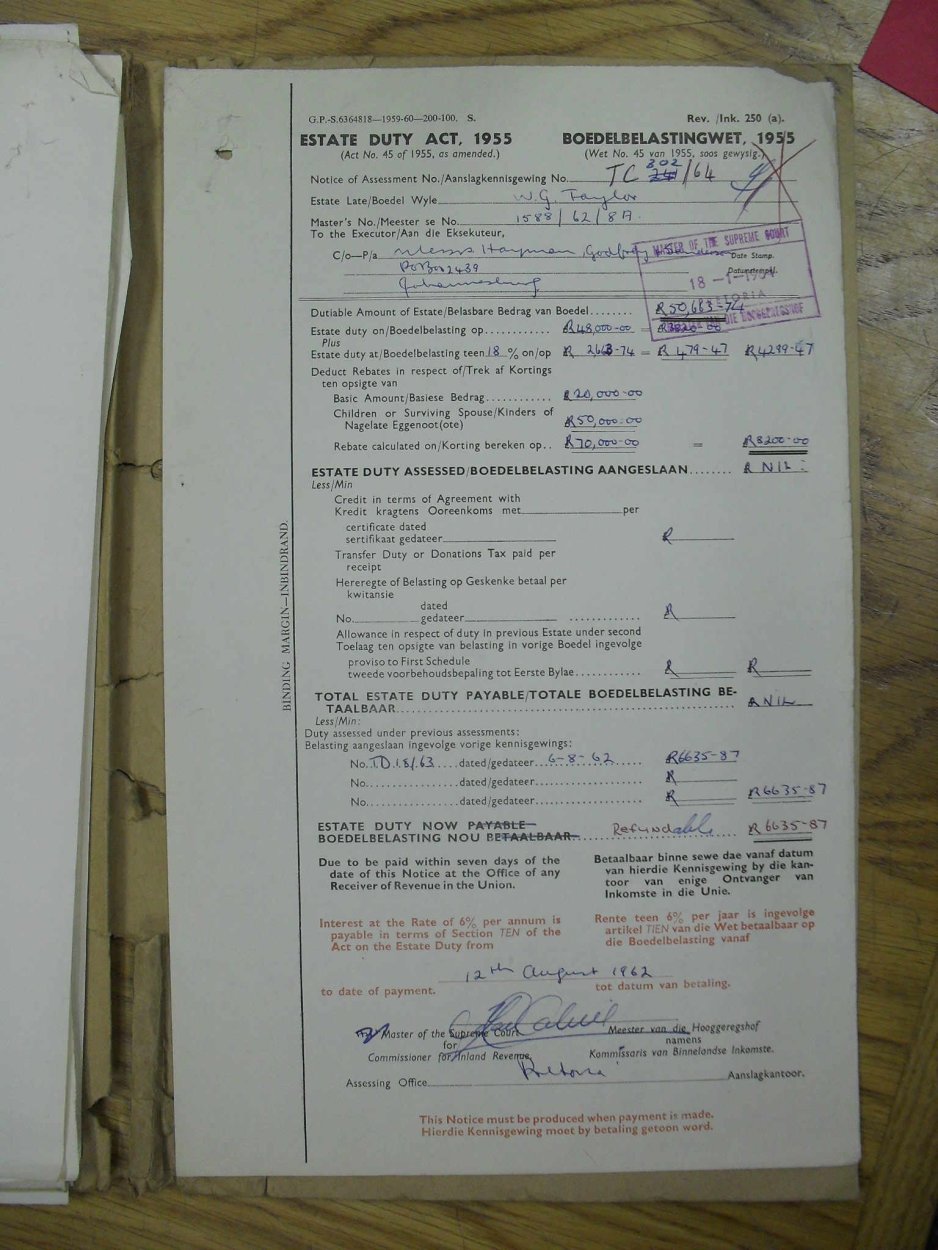 G.P.-S.6364818—1959-60—200-100. S. Rev. /Ink. 250 (a).
ESTATE DUTY ACT, 1955 BOEDELBELASTINGWET, 1955
(Act No. 45 of 1955, as amended.) (Wet No. 45 van 1955, soos gewysig.)
302
Notice of Assessment No./Aanslagkennisgewing No. TC /64
Estate Late/Boedel Wyle W.G. Taylor
Master's No./Meester se No. 1588/62/8A.
To the Executor/Aan die Eksekuteur,
MASTER OF THE SUPREME COURT
C/o—P/a Messrs Hayman, Godfrey Date Stamp.
PO Box 2439 Datumstempel.
18 -1-
Johannesburg
PRETORIA
Dutiable Amount of Estate/Belasbare Bedrag van Boedel R50,663-74
Estate duty on/Boedelbelasting op R48,000-00 = R3820-00
Plus
Estate duty at/Boedelbelasting teen 18 % on/op R 2663-74 = R 479-47 R4299-47
Deduct Rebates in respect of/Trek af Kortings
ten opsigte van
Basic Amount/Basiese Bedrag R20,000-00
Children or Surviving Spouse/Kinders of
Nagelate Eggenoot(ote) R50,000-00
Rebate calculated on/Korting bereken op R70,000-00 = R8200-00
ESTATE DUTY ASSESSED/BOEDELBELASTING AANGESLAAN R NIL
Less/Min
Credit in terms of Agreement with
Kredit kragtens Ooreenkoms met per
certificate dated
sertifikaat gedateer R
Transfer Duty or Donations Tax paid per
receipt
Hereregte of Belasting op Geskenke betaal per
kwitansie
dated
No. gedateer R
Allowance in respect of duty in previous Estate under second
Toelaag ten opsigte van belasting in vorige Boedel ingevolge
proviso to First Schedule
tweede voorbehoudsbepaling tot Eerste Bylae R R
TOTAL ESTATE DUTY PAYABLE/TOTALE BOEDELBELASTING BE-
TAALBAAR R NIL
Less/Min:
Duty assessed under previous assessments:
Belasting aangeslaan ingevolge vorige kennisgewings:
No. TD.18/63 dated/gedateer 6-8-62 R6635-87
No. dated/gedateer R
No. dated/gedateer R R6635-87
ESTATE DUTY NOW PAYABLE
BOEDELBELASTING NOU BETAALBAAR Refundable R6635-87
Due to be paid within seven days of the
date of this Notice at the Office of any
Receiver of Revenue in the Union.
Betaalbaar binne sewe dae vanaf datum
van hierdie Kennisgewing by die kan-
toor van enige Ontvanger van
Inkomste in die Unie.
Interest at the Rate of 6% per annum is
payable in terms of Section TEN of the
Act on the Estate Duty from
Rente teen 6% per jaar is ingevolge
artikel TIEN van die Wet betaalbaar op
die Boedelbelasting vanaf
12th August 1962
to date of payment. tot datum van betaling.
Master of the Supreme Court Meester van die Hooggeregshof
for namens
Commissioner for Inland Revenue. Kommissaris van Binnelandse Inkomste.
Assessing Office Pretoria Aanslagkantoor.
This Notice must be produced when payment is made.
Hierdie Kennisgewing moet by betaling getoon word.
BINDING MARGIN—INBINDRAND.